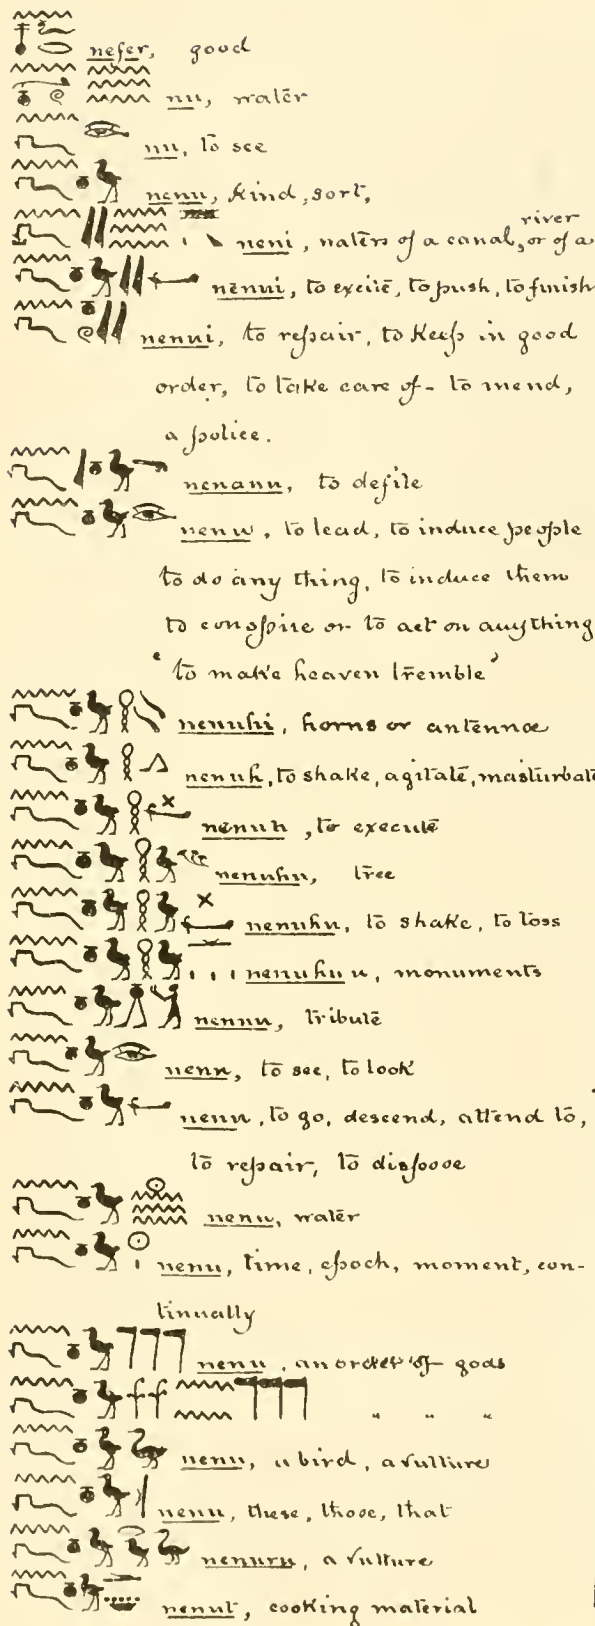 nefer, good
nu, water
nu, to see
nenu, kind, sort,
river
neni, waters of a canal, or of a
nenui, to excite, to push, to finish
nenui, to repair, to keep in good
order, to take care of - to mend,
a police.
nenanu, to defile
nenu, to lead, to induce people
to do any thing, to induce them
to conspire or to act on anything
"to make heaven tremble"
nenuhi, horns or antennæ
nenuh, to shake, agitate, masturbate
nenuh, to execute
nenuhu, tree
nenuhu, to shake, to toss
nenuhu u, monuments
nennu, tribute
nenu, to see, to look
nenu, to go, descend, attend to,
to repair, to dispose
nenu, water
nenu, time, epoch, moment, con-
tinually
nenu, an order of gods
" " "
nenu, a bird, a vulture
nenu, these, those, that
nenuru, a vulture
nenut, cooking material